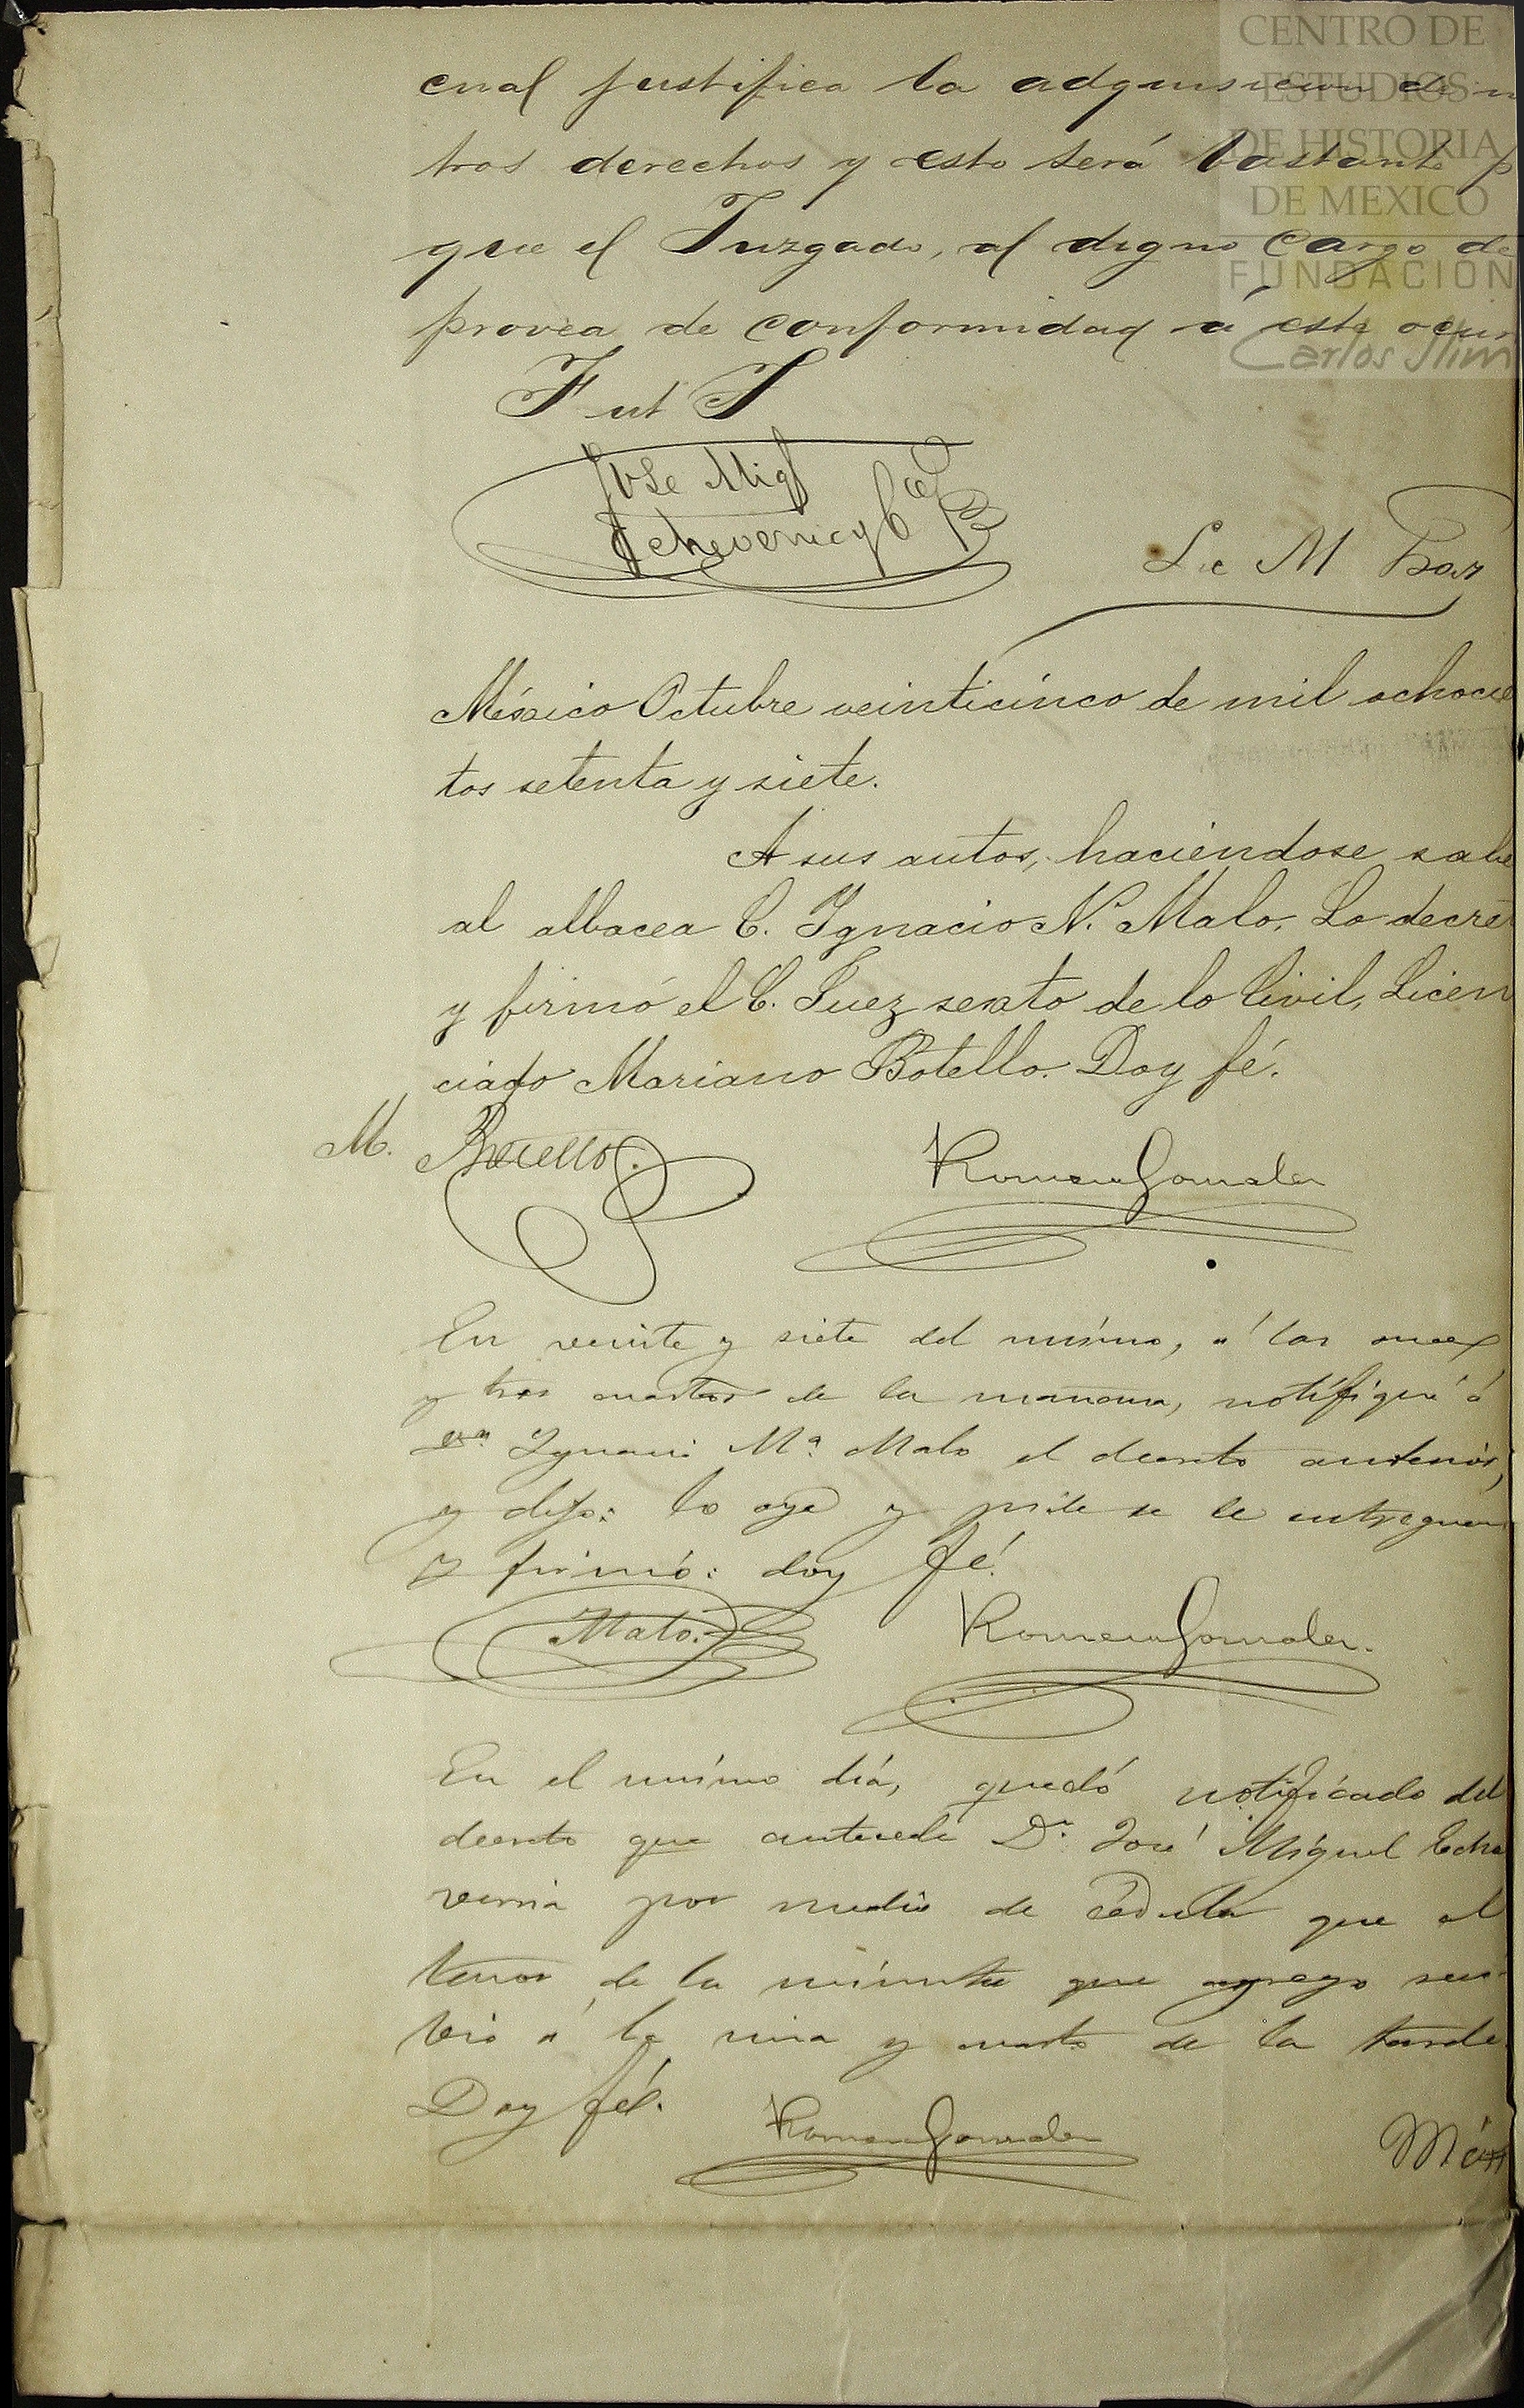 CENTRO DE
ESTUDIOS
DE HISTORIA
DE MEXICO
FUNDACIÓN
Carlos Slim
cual justifica la adquisicion de n
tros derechos y esto será bastante p
que el Juzgado, al digno cargo de
provea de conformidad á este ocur
José Migl
Echeverria y
Lic M
México Octubre veinticinco de mil ochocie
tos setenta y siete.
A sus autos, haciéndose sabe
al albacea C. Ygnacio N. Malo. Lo decret
y firmó el C. Juez sexto de lo Civil, Licen
ciado Mariano Botello. Doy fé.
M. Botello.
Romero Gonzalez
En veinte y siete del mismo, á las once
y tres cuartos de la mañana, notifiqué á
Ignacio Mª Malo el decreto anterior,
y dijo: lo oye y pide se le entreguen
y firmó: doy fé.
Malo.
Romero Gonzalez.
En el mismo dia, quedó notificado del
decreto que antecede Dn José Miguel Eche
verria por medio de cédula que al
tenor de la minuta que agrego
á la una y cuarto de la tarde.
Doy fé.
Romero Gonzalez